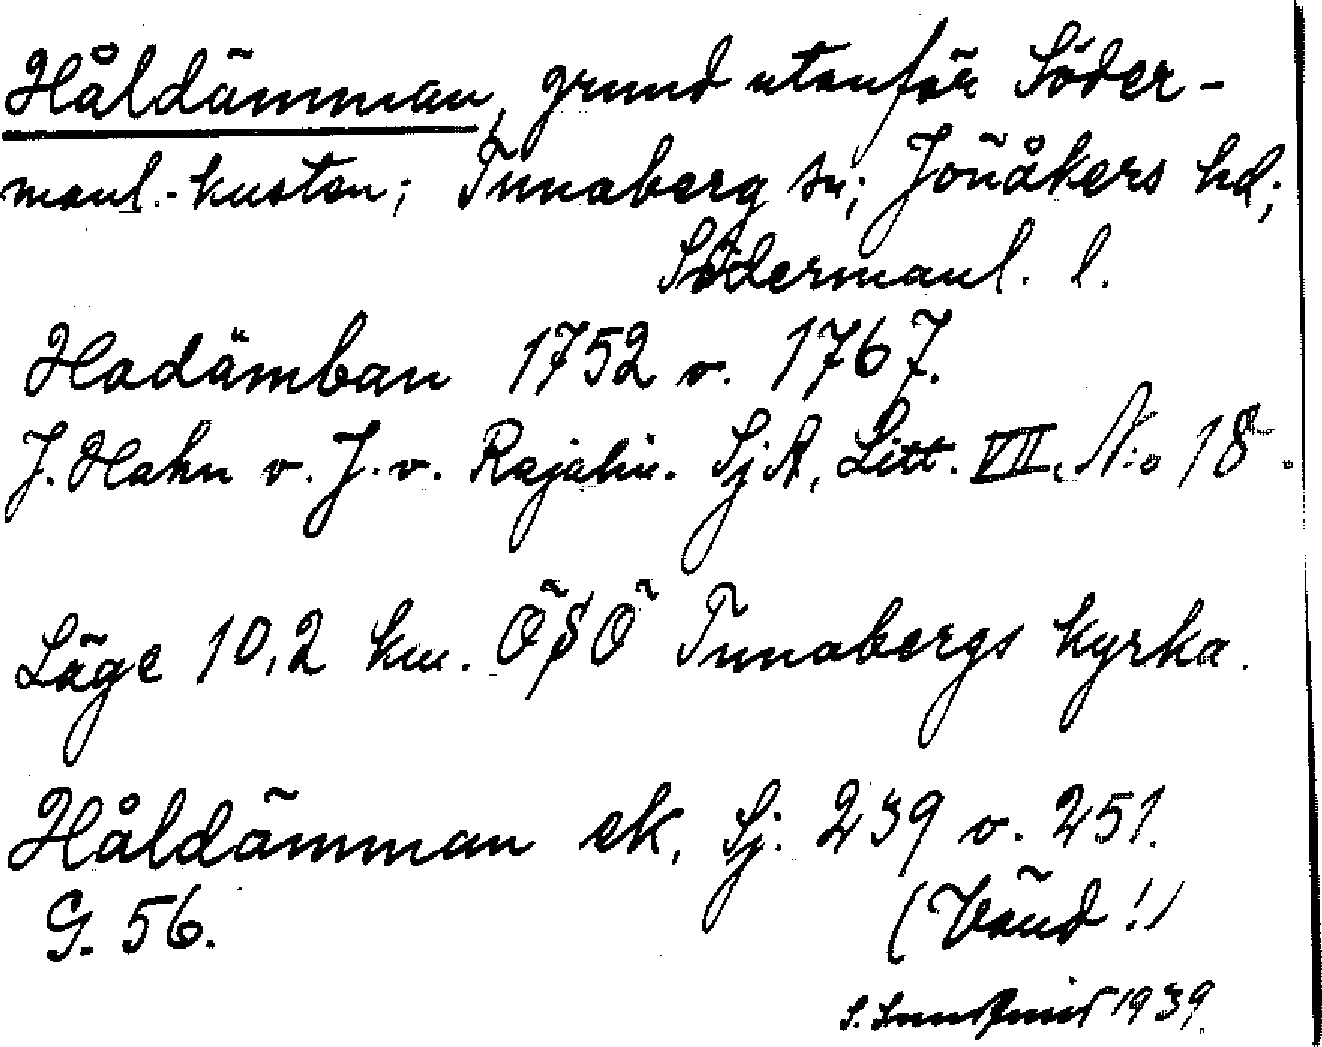 Håldämman, grund utanför Söder-
manl.-kusten; Tunaberg sn; Jönåkers hd;
Södermanl. l.
Hadämban 1752 o. 1767.
J. Hahn o. J. v. Rajalin. SjA, Litt. VII. N:o 18.
Läge 10,2 km. ÖSÖ Tunabergs kyrka.
Håldämman ek. Sj. 239 o. 251.
G. 56.
(Vänd!)
S. 1939